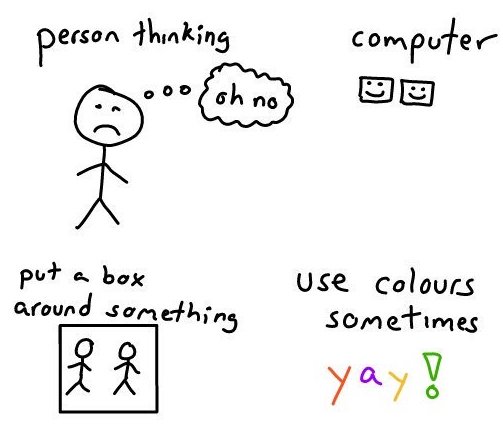 person thinking
oh no
computer
put a box
around something
use colours
sometimes
yay!